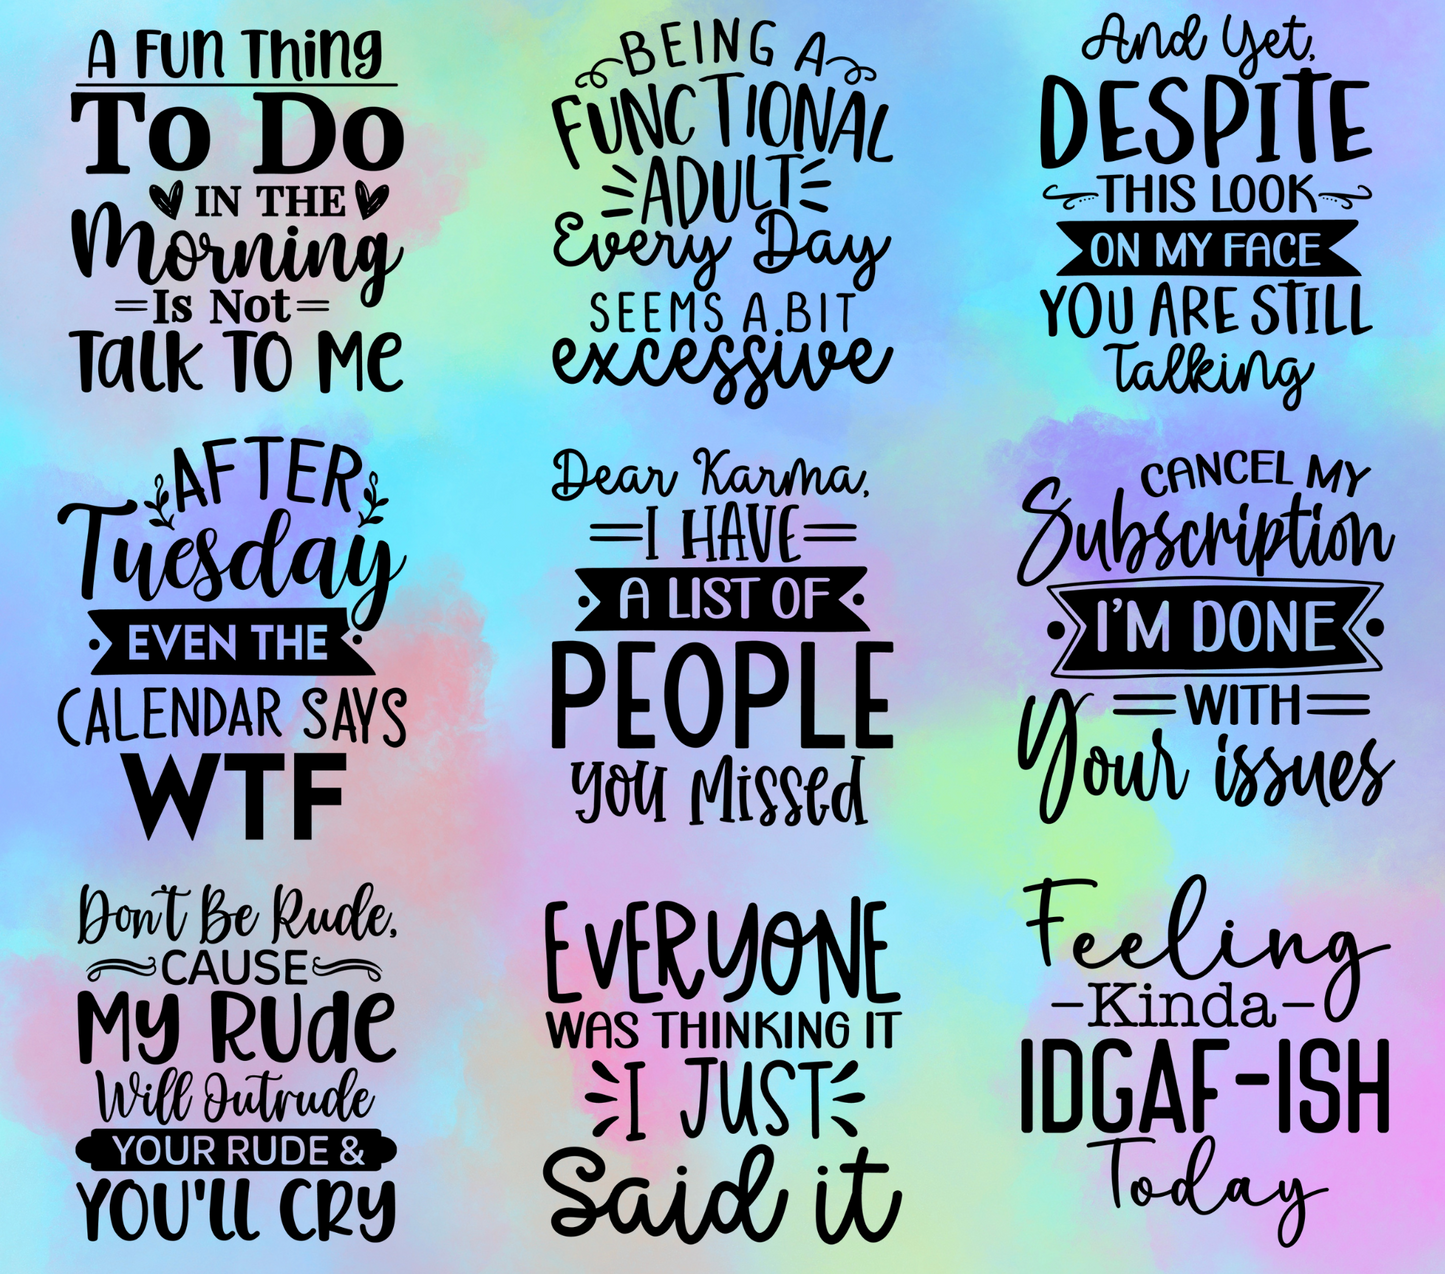 A Fun Thing
To Do
IN THE
Morning
Is Not
Talk To Me
BEING A
FUNCTIONAL
ADULT
Every Day
SEEMS A BIT
excessive
And Yet,
DESPITE
THIS LOOK
ON MY FACE
YOU ARE STILL
Talking
AFTER
Tuesday
EVEN THE
CALENDAR SAYS
WTF
Dear Karma,
I HAVE
A LIST OF
PEOPLE
you Missed
CANCEL MY
Subscription
I'M DONE
WITH
Your issues
Don't Be Rude,
CAUSE
My Rude
Will Outrude
YOUR RUDE &
YOU'll CRy
EVERYONE
WAS THINKING IT
I JUST
Said it
Feeling
-Kinda-
IDGAF-ISH
Today